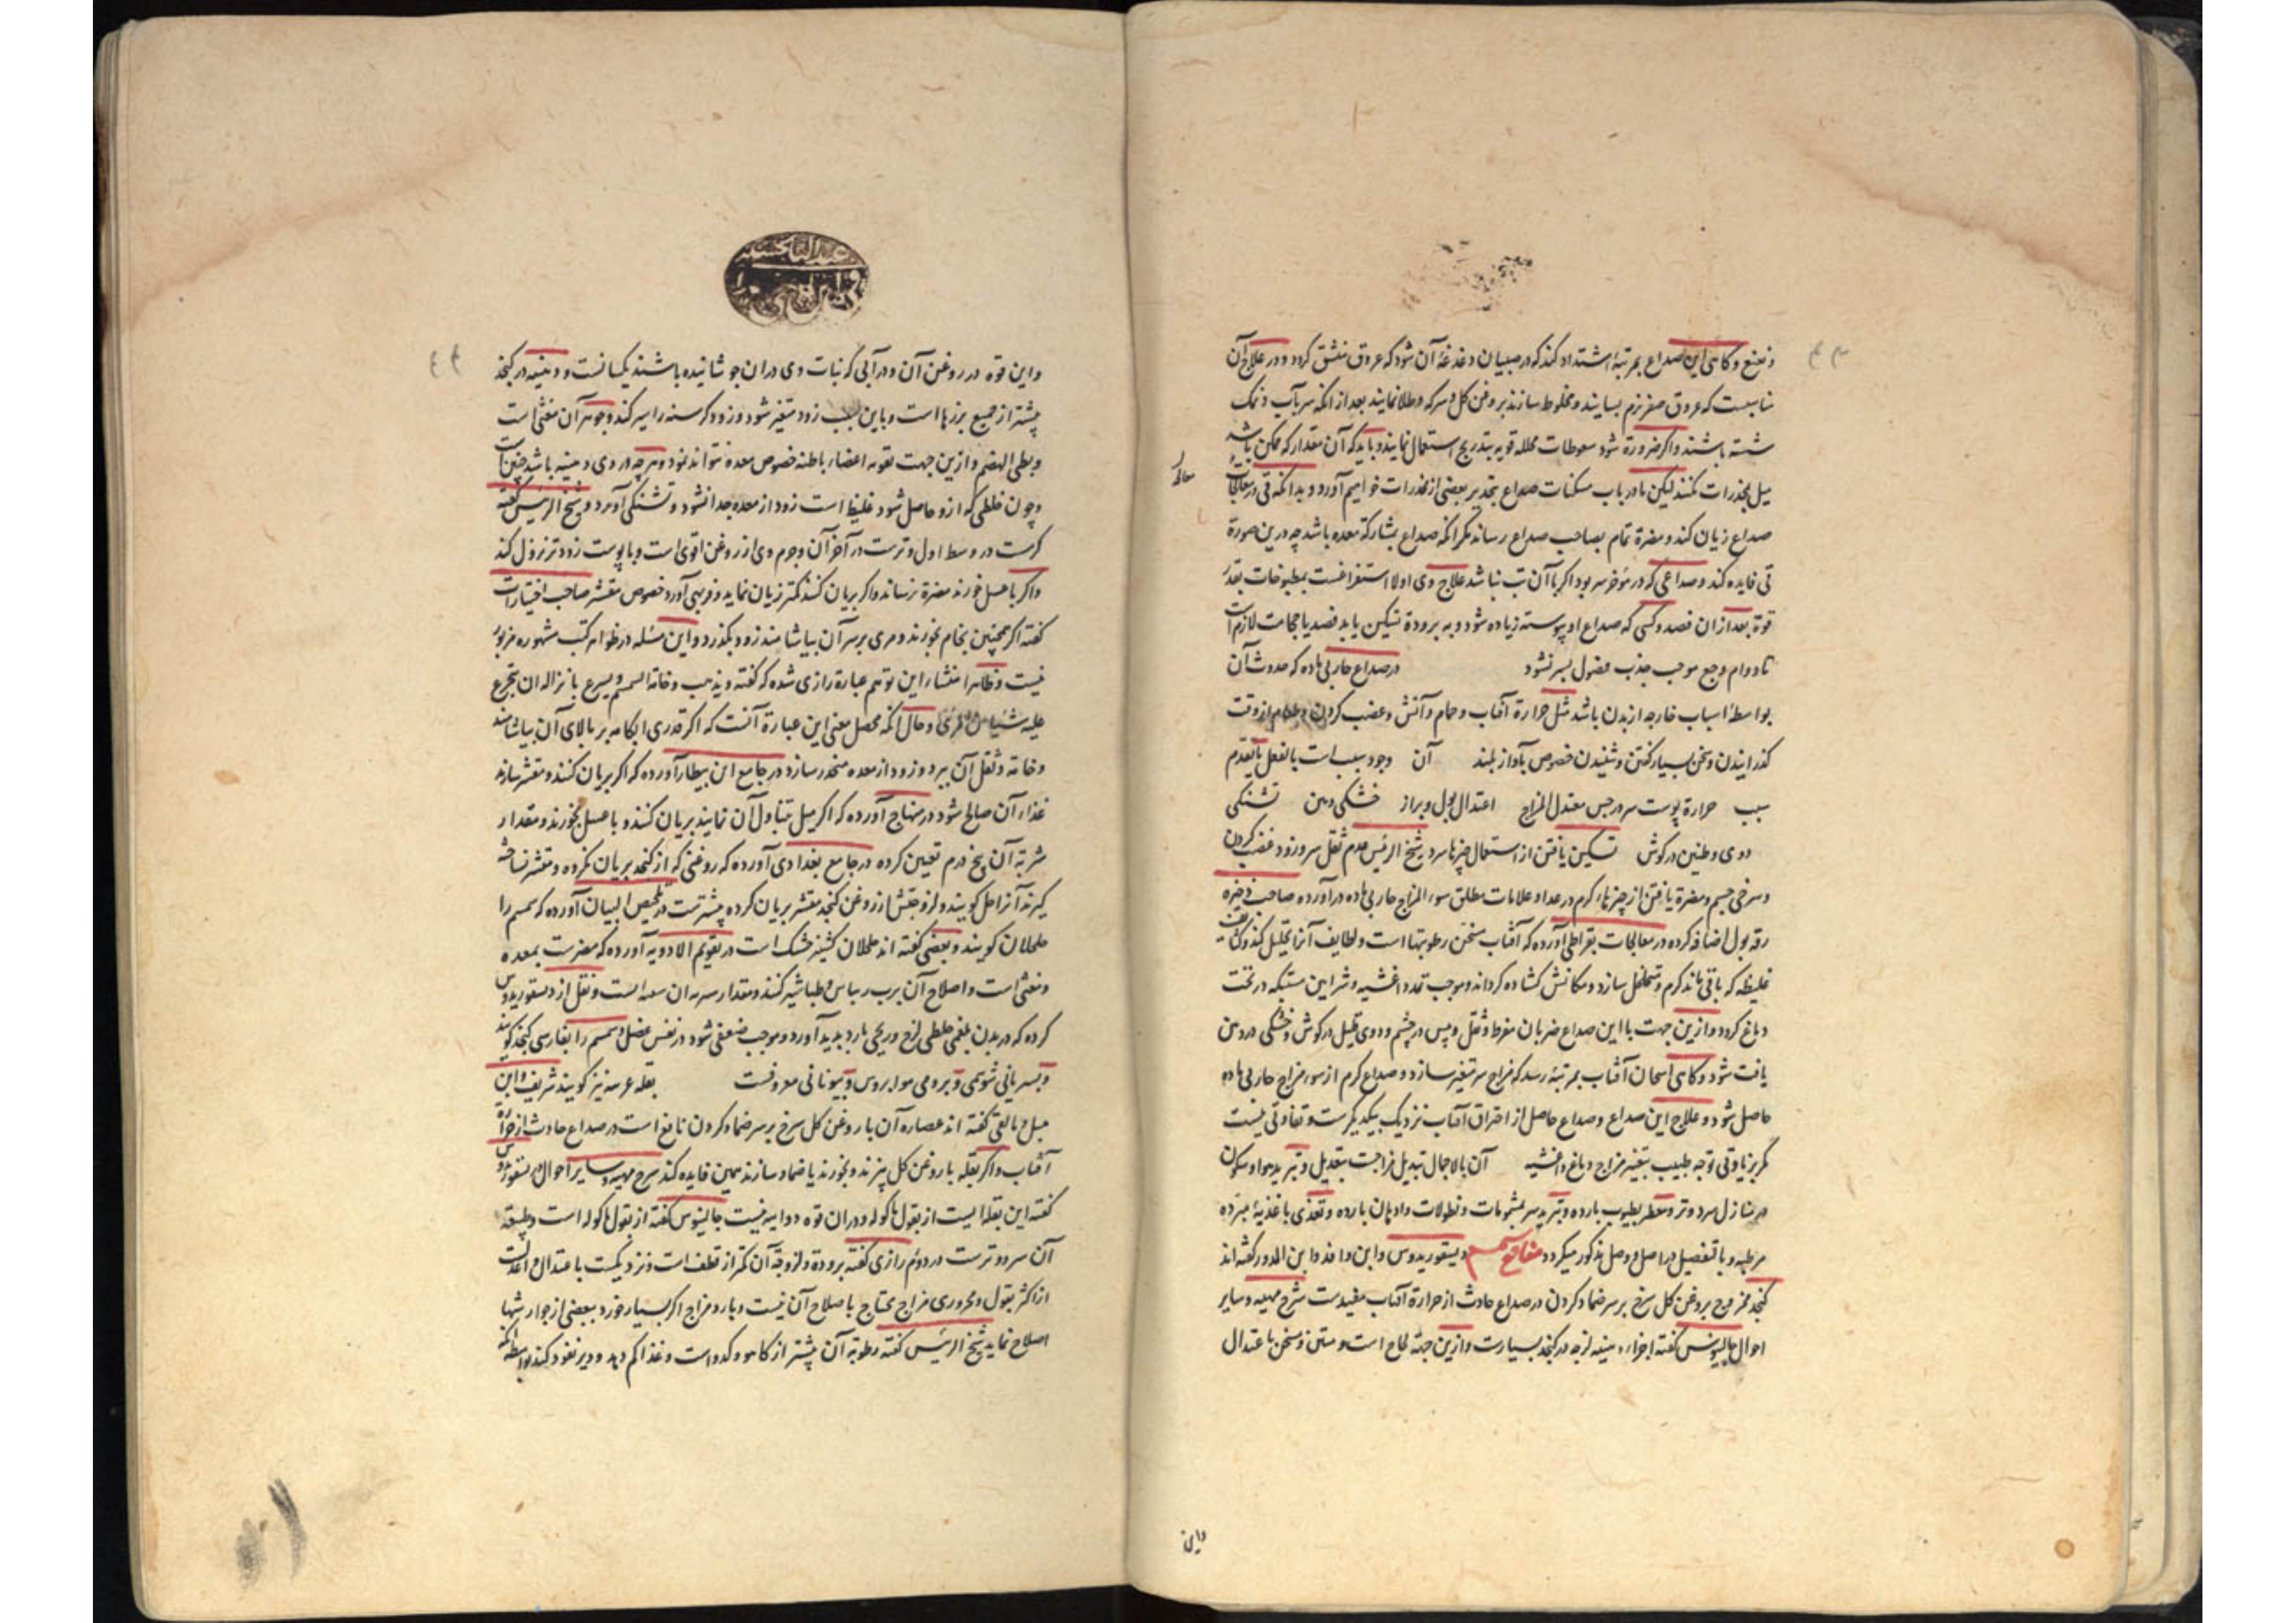 و تمنع و کاهی این صداع بمرتبهٔ اشتداد کند که در صبیان دغدغهٔ آن شود که عروق منشق کردد و در علاج آن
مناسبست که عروق صفر نرم بسایند و مخلوط سازند بروغن کل و سرکه و طلا نمایند بعد از انکه سر بآب و نمک
شسته باشند و اکر ضرورة شود سعوطات محلله قویه بتدریج استعمال نمایند و باید که آن مقدار که ممکن باشد
میل بمخدرات نکنند لیکن ما در باب مسکنات صداع بتخدیر بعضی از مخدرات خواهیم آورد و بدانکه قی در معالجات
صداع زیان کند و مضرة تمام بصاحب صداع رساند مکر انکه صداع بمشارکة معده باشد چه درین صورة
قی فایده کند و صداعی که در مؤخر سر بود اکر با آن تب نباشد علاج وی اولا استفراغست بمطبوخات بقدر
قوة بعد از ان فصد و کسی که صداع او پیوسته زیاده شود و به برودة تسکین یابد فصد یا حجامت لازم است
تا دوام وجع موجب جذب فضول بسر نشود در صداع حار بی ماده که حدوث آن
بواسطهٔ اسباب خارجه از بدن باشد مثل حرارة آفتاب و حمام و آتش و غضب کردن و طعام از وقت
کذرانیدن و سخن بسیار کفتن و شنیدن خصوص بآواز بلند آن وجود سبب است بالفعل یا تقدم
سبب حرارة پوست سر در جس معتدل المزاج اعتدال بول و براز خشکی دهن تشنکی
دوی و طنین در کوش تسکین یافتن از استعمال چیزها سرد شیخ الرئیس عدم ثقل سر و زود غضب کردن
و سرخی چشم و مضرة یافتن از چیزهاء کرم در عداد علامات مطلق سوء المزاج حار بی ماده در آورده صاحب ذخیره
رقه بول اضافه کرده در معالجات بقراطی آورده که آفتاب مسخن رطوبتها است و لطایف آنرا تحلیل کند و کثایف
غلیظه که باقی ماند کرم و متخلخل سازد و مکانش کشاده کرداند و موجب تمدد اغشیه و شراین مشتبکه در تحت
دماغ کردد و ازین جهت با این صداع ضربان مفرط و ثقل و یبس در چشم و دوی قلیل در کوش و خشکی در دهن
یافت شود و کاهی اسخان آفتاب بمرتبهٔ رسد که مزاج سر متغیر سازد و صداع کرم از سوء مزاج حار بی ماده
حاصل شود و علاج این صداع و صداع حاصل از احتراق آفتاب نزدیک بیکدیکرست و تفاوتی نیست
مکر بزیادتی توجه طبیب بتغیر مزاج دماغ و اغشیه آن بالاجمال تبدیل مزاجست بتعدیل و تبرید هوا و سکون
در منازل سرد و تر و معطر بطیوب بارده و تبرید سر بمشمومات و نطولات و ادهان بارده و تغذی باغذیهٔ مبرده
مرطبه و بالتفصیل در اصل و وصل مذکور میکردد مفاتح سمسم دیسقوریدوس و ابن وافد و ابن الدور کفته اند
کنجد ممزوج بروغن کل سرخ بر سر ضماد کردن در صداع حادث از حرارة آفتاب مفیدست شرح مهیه و سایر
احوال جالینوس کفته اجزاء دهنیه لزجه در کنجد بسیارست و ازین جهة لحاج است و ملین و مسخن باعتدال
و این
و این قوه در روغن آن و در آبی که نبات وی در ان جوشانیده باشند یکسانست و دهنیه در کنجد
بیشتر از جمیع بزرها است و باین سبب زود متغیر شود و زود کرسنه را سیر کند و جوهر آن مغثی است
و بطی الهضم و ازین جهت تقویه اعضاء باطنه خصوص معده نتواند نمود و هر چه در وی دهنیه باشد چنین است
و چون خلطی که ازو حاصل شود غلیظ است زود از معده جدا نشود و تشنکی آورد و شیخ الرئیس کفته
کرمست در وسط اول و ترست در آخر آن و جرم وی از روغن اقوی است و با پوست زودتر نزول کند
و اکر با عسل خورند مضرة نرساند و اکر بریان کنند کمتر زیان نماید و فربهی آورد خصوص مقشر صاحب اختیارات
کفته اکر همچنین بخام بخورند و مری بر سر آن بیاشامند زود بکذرد و این مسئله در ظواهر کتب مشهوره مزبور
نیست و ظاهرا منشاء این توهم عبارة رازی شده که کفته و یذهب وخامة السمسم و یسرع بانزاله ان یتجرع
علیه شئیا من المری و حال انکه محصل معنی این عبارة آنست که اکر قدری ابکامه بر بالای آن بیاشامند
وخامة و ثقل آن ببرد و زود از معده منحدر سازد در جامع ابن بیطار آورده که اکر بریان کنند و مقشر سازند
غذاء آن صالح شود در منهاج آورده که اکر میل بتناول آن نمایند بریان کنند و با عسل بخورند و مقدار
شربة آن پنج درم تعیین کرده در جامع بغدادی آورده که روغنی که از کنجد بریان نکرده و مقشر نساخته
کیرند آنرا حل کویند و لزوجتش از روغن کنجد مقشر بریان کرده بیشترست در تلخیص البیان آورده که سمسم را
جلجلان کویند و بعضی کفته اند جلجلان کشنیز خشک است در تقویم الادویه آورده که مضرست بمعده
و مغثی است و اصلاح آن برب ریباس و طباشیر کنند و نقل از دیسقوریدوس
کرده که در بدن بلغمی خلطی لزج و ریحی بارد پدید آورد و موجب ضعفی شود در نفس عضل و سمسم را بفارسی کنجد کویند
و بسریانی شوشمی و برومی و بیونانی معروفست بقله عربیه نیز کویند شریف و ابن
کفته اند عصاره آن با روغن کل سرخ بر سر ضماد کردن نافع است در صداع حادث از حرارة
آفتاب و اکر بقله با روغن کل پزند و بخورند یا ضماد سازند همین فایده کند شرح مهیه و سایر احوال دیسقوریدوس
کفته این بقله ایست از بقول ماکوله و در ان قوه دوایی نیست جالینوس کفته از بقول ماکوله است و طبیعة
آن سرد و ترست در دوم رازی کفته برودة و لزوجة آن کمتر از قطف است و نزدیکست باعتدال و
از اکثر بقول و محروری مزاج محتاج باصلاح آن نیست و بارد مزاج اکر بسیار خورد ببعضی از جوارشها
اصلاح نماید شیخ الرئیس کفته رطوبة آن بیشتر از کاهو و کدو است و غذا کم دهد و دیر نفوذ کند بواسطه انکه